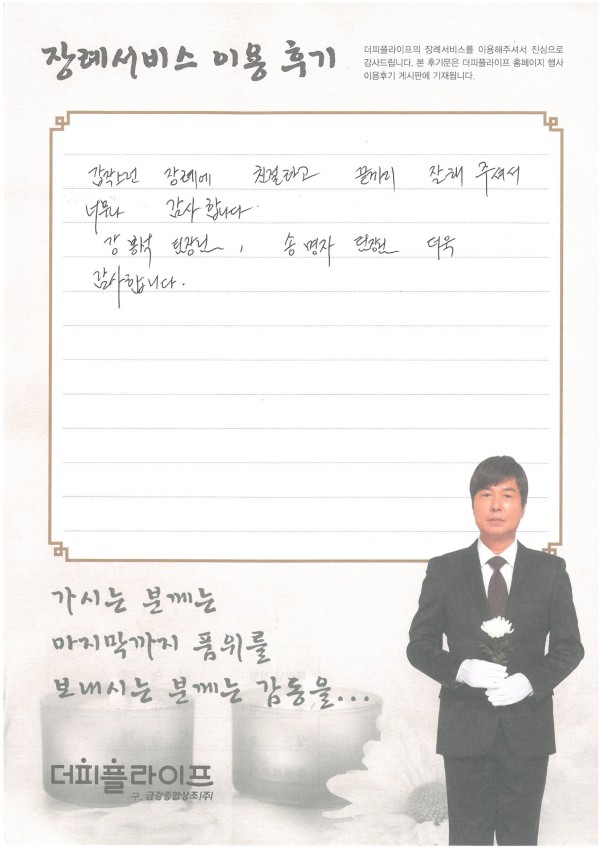 장례서비스 이용 후기
더피플라이프의 장례서비스를 이용해주셔서 진심으로
감사드립니다. 본 후기문은 더피플라이프 홈페이지 행사
이용후기 게시판에 기재됩니다.
갑작스런 장례에 친절하고 끝까지 잘해 주셔서
너무나 감사합니다.
강홍석 팀장님, 송명자 팀장님 더욱
감사합니다.
가시는 분께는
마지막까지 품위를
보내시는 분께는 감동을...
더피플라이프
구. 금강종합상조(주)